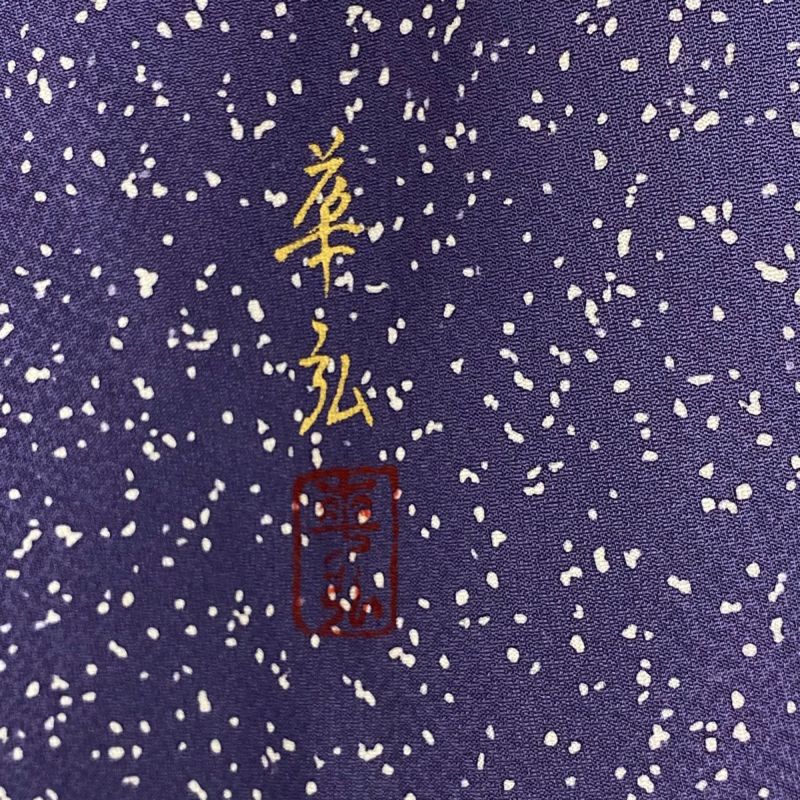 華弘
華弘